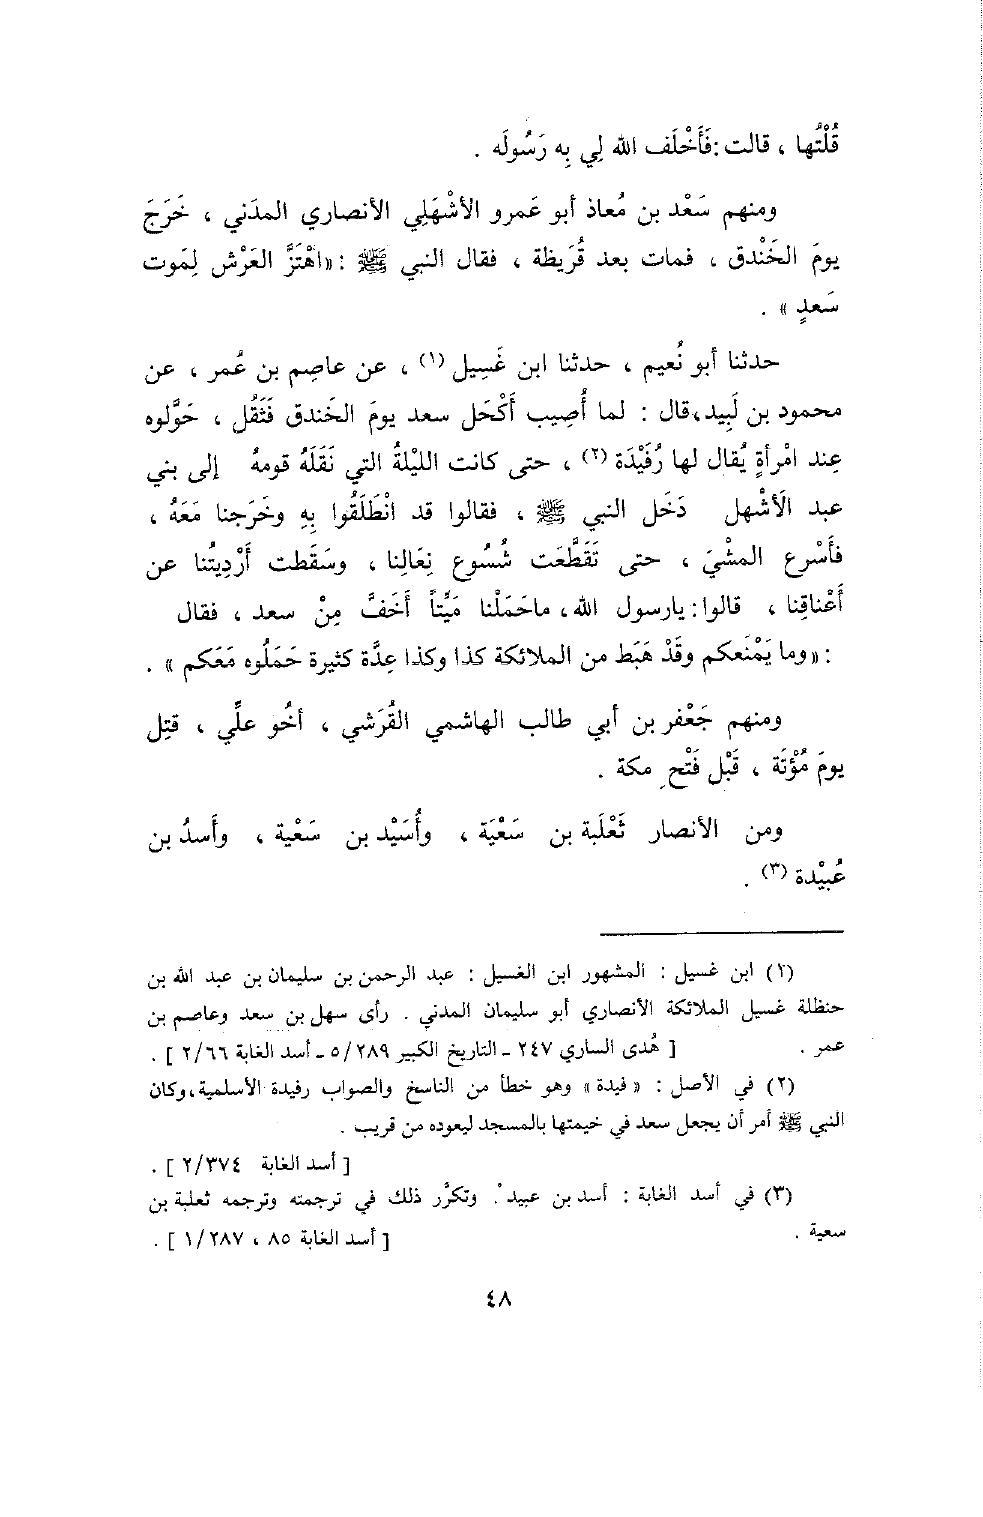 قُلْتُها ، قالت :فَأَخْلَف الله لِي بِه رَسُولَه .
ومنهم سَعْد بن مُعاذ أبو عَمرو الأشْهَلِي الأنصاري المدَني ، خَرَجَ
يومَ الخَنْدق ، فمات بعد قُرَيظة ، فقال النبي ﷺ :«اهْتَزَّ العَرْش لِمَوت
سَعدٍ » .
حدثنا أبو نُعيم ، حدثنا ابن غَسِيل (١) ، عن عاصِم بن عُمر ، عن
محمود بن لَبِيد،قال : لما أُصِيب أَكْحَل سعد يومَ الخَندق فَثَقُل ، حَوَّلوه
عِند امْرأةٍ يُقال لها رُفَيْدَة (٢) ، حتى كانت الليْلةُ التي نَقَلَهُ قومهُ إلى بني
عبد الأَشْهل دَخَل النبي ﷺ ، فقالوا قد انْطَلَقُوا بِهِ وخَرَجنا مَعَهُ ،
فأَسْرع المشْيَ ، حتى تَقَطَّعَت شُسُوع نِعَالنا ، وسَقَطت أَرْدِيتُنا عن
أَعْناقِنا ، قالوا: يارسول الله، ماحَمَلْنا مَيِّتاً أَخَفَّ مِنْ سعد ، فقال
:«وما يَمْنَعكم وقَدْ هَبَط من الملائكة كذا وكذا عِدَّة كثيرة حَمَلُوه مَعَكم » .
ومنهم جَعْفر بن أبي طالب الهاشمي القُرَشي ، أخُو علِّي ، قتِل
يومَ مُؤْتَة ، قَبْل فَتْحِ مكة .
ومن الأنصار ثَعْلَبة بن سَعْيَة ، وأُسَيْد بن سَعْية ، وأَسدُ بن
عُبيْدة (٣) .
(١) ابن غسيل : المشهور ابن الغسيل : عبد الرحمن بن سليمان بن عبد الله بن
حنظلة غسيل الملائكة الأنصاري أبو سليمان المدني . رأى سهل بن سعد وعاصم بن
عمر . [ هُدى الساري ٢٤٧ ـ التاريخ الكبير ٥/٢٨٩ ـ أسد الغابة ٢/٦٦ ] .
(٢) في الأصل : « فيدة » وهو خطأ من الناسخ والصواب رفيدة الأسلمية،وكان
النبي ﷺ أمر أن يجعل سعد في خيمتها بالمسجد ليعوده من قريب .
[ أسد الغابة ٢/٣٧٤ ] .
(٣) في أسد الغابة : أسد بن عبيد . وتكرَّر ذلك في ترجمته وترجمه ثعلبة بن
سعية . [ أسد الغابة ٨٥ ، ١/٢٨٧ ] .
٤٨